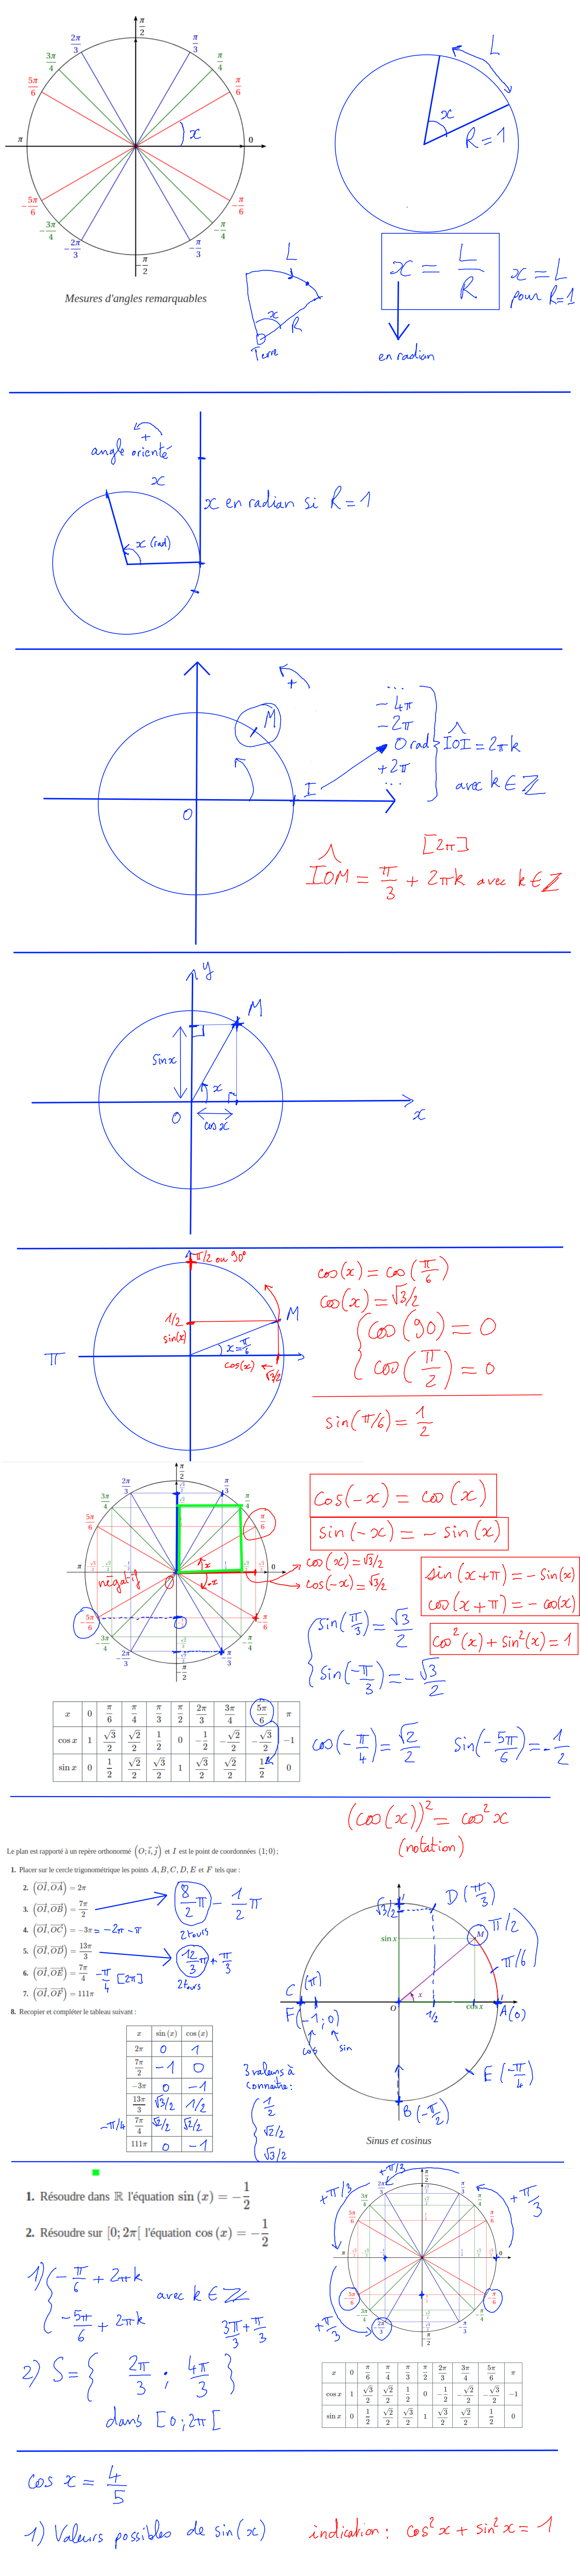 π/2
2π/3
π/3
3π/4
π/4
5π/6
π/6
x
π
0
-5π/6
-π/6
-3π/4
-π/4
-2π/3
-π/3
-π/2
Mesures d'angles remarquables
L
x
R = 1
L
x
R
Terre
x = L/R
x = L
pour R=1
en radian
+
angle orienté
x
x (rad)
x en radian si R = 1
+
M
O
I
...
-4π
-2π
0 rad
+2π
...
IOI = 2πk
avec k ∈ ℤ
[2π]
IOM = π/3 + 2πk avec k ∈ ℤ
y
M
sin x
x
O
cos x
x
π/2 ou 90°
1/2
sin(x)
M
x = π/6
π
cos(x)
√3/2
cos(x) = cos(π/6)
cos(x) = √3/2
cos(90) = 0
cos(π/2) = 0
sin(π/6) = 1/2
π/2
2π/3
π/3
3π/4
π/4
5π/6
π/6
π
0
négatif
x
-x
O
-5π/6
-π/6
-3π/4
-π/4
-2π/3
-π/3
-π/2
cos(-x) = cos(x)
sin(-x) = - sin(x)
cos(x) = √3/2
cos(-x) = √3/2
sin(x+π) = - sin(x)
cos(x+π) = - cos(x)
cos²(x) + sin²(x) = 1
sin(π/3) = √3/2
sin(-π/3) = -√3/2
x 0 π/6 π/4 π/3 π/2 2π/3 3π/4 5π/6 π
cos x 1 √3/2 √2/2 1/2 0 -1/2 -√2/2 -√3/2 -1
sin x 0 1/2 √2/2 √3/2 1 √3/2 √2/2 1/2 0
cos(-π/4) = √2/2
sin(-5π/6) = -1/2
(cos(x))² = cos²x
(notation)
Le plan est rapporté à un repère orthonormé (O; i, j) et I est le point de coordonnées (1; 0) ;
1. Placer sur le cercle trigonométrique les points A, B, C, D, E et F tels que :
2. (OI, OA) = 2π
3. (OI, OB) = 7π/2
8/2 π - 1/2 π
2 tours
4. (OI, OC) = -3π = -2π - π
5. (OI, OD) = 13π/3
12/3 π + π/3
2 tours
6. (OI, OE) = 7π/4
-π/4 [2π]
7. (OI, OF) = 111π
8. Recopier et compléter le tableau suivant :
x sin (x) cos (x)
2π 0 1
7π/2 -1 0
-3π 0 -1
13π/3 √3/2 1/2
-π/4 7π/4 √2/2 √2/2
111π 0 -1
3 valeurs à
connaître :
1/2
√2/2
√3/2
√3/2
D (π/3)
π/2
sin x
M
π/6
C (π)
F(-1; 0)
cos
sin
O
x
1/2
cos x
A(0)
E (-π/4)
B(-π/2)
Sinus et cosinus
1. Résoudre dans ℝ l'équation sin (x) = -1/2
2. Résoudre sur [0; 2π[ l'équation cos (x) = -1/2
1) -π/6 + 2πk
-5π/6 + 2πk
avec k ∈ ℤ
3π/3 + π/3
2) S = { 2π/3 ; 4π/3 }
dans [0; 2π[
+π/3
+π/3
+π/3
+π/3
π/2
2π/3
π/3
3π/4
π/4
5π/6
π/6
π
0
-5π/6
-π/6
-2π/3
-3π/4
-π/4
-π/3
-π/2
x 0 π/6 π/4 π/3 π/2 2π/3 3π/4 5π/6 π
cos x 1 √3/2 √2/2 1/2 0 -1/2 -√2/2 -√3/2 -1
sin x 0 1/2 √2/2 √3/2 1 √3/2 √2/2 1/2 0
cos x = 4/5
1) Valeurs possibles de sin(x)
indication : cos²x + sin²x = 1